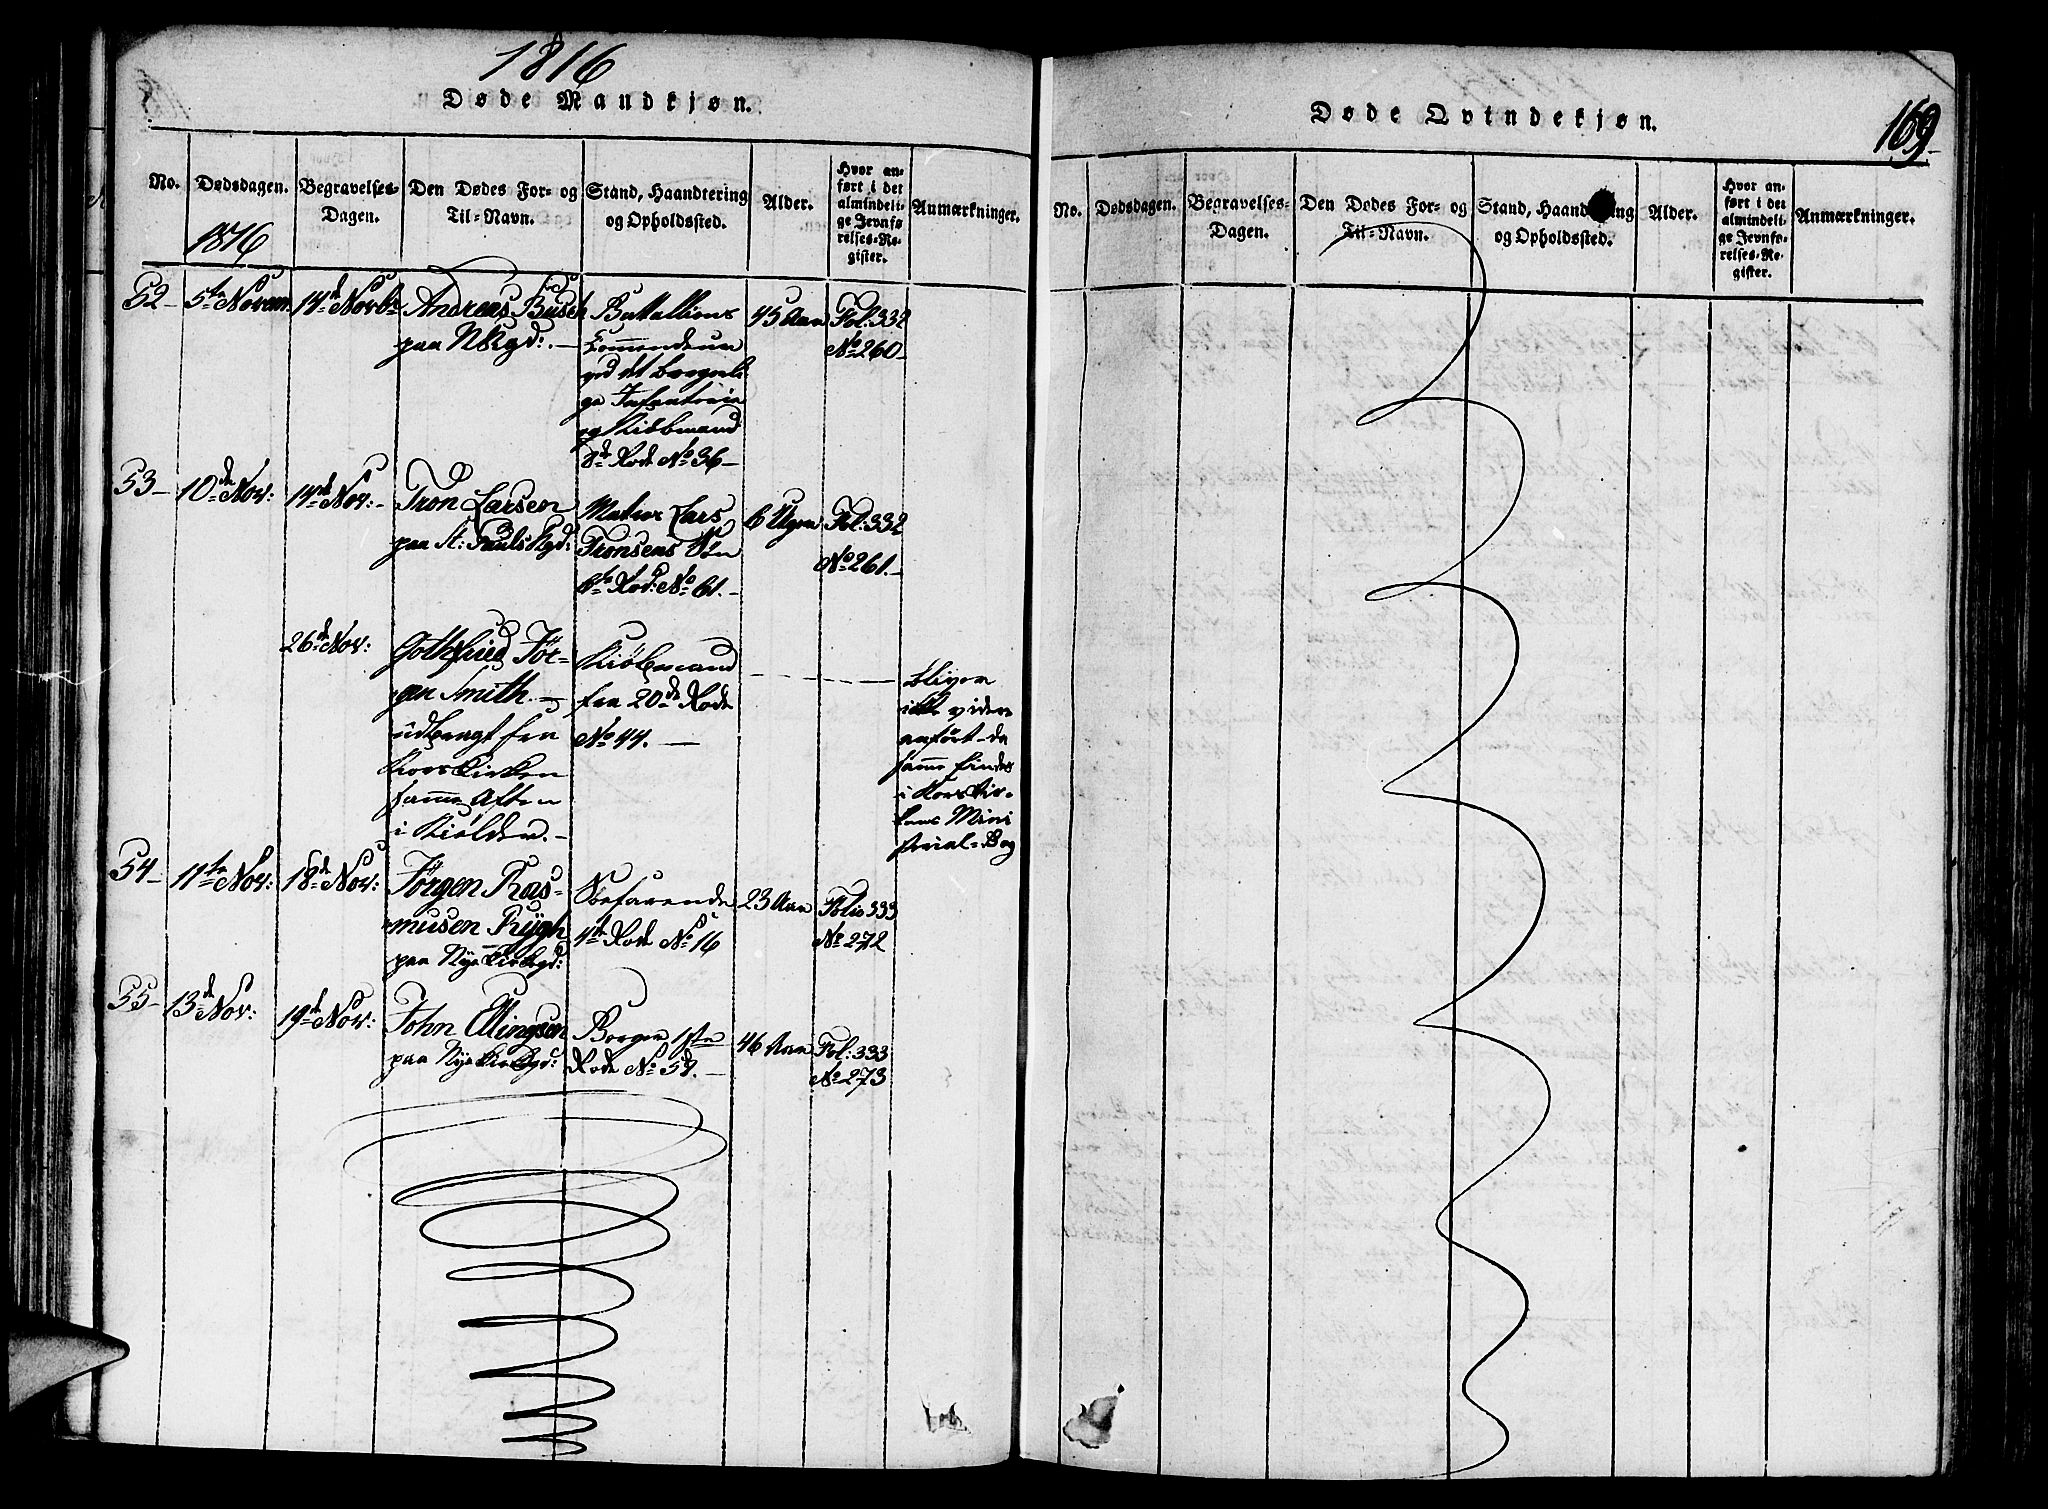 1816
Døde Mandkjøn.
No.
Dødsdagen.
1816
Begravelses-
Dagen.
Den Dødes For- og
Til-Navn.
Stand, Haandtering
og Opholdssted.
Alder.
Hvor an-
ført i det
almindeli-
ge Jevnfø-
relses-Re-
gister.
Anmærkninger.
52-
5te Novem.
14d Novbr
Andreas Busch
paa NKgd:. -
Battallions
Commandeur
ved det borgerli-
ge Infanterie
og Kiøbmand
8de Rode No 36-
45 Aar
Fol: 332
No 260-
53-
10de Nov:
14de Nov:-
Tron Larsen
paa St: Pauls Kgd:
Matros Lars
Tronsens Søn
6te Rod: No 61.-
6 Uger
Fol: 332
No 261.-
26d Nov:
Gothfried Jør-
gen Smith. -
udbragt fra
Korskirken
samme Aften
i Kiølden. -
Kiøbmand
fra 20de Rode
No 44. -
bliver
ikke videre
anført- da
samme findes
i Korskir-
kens Mini
sterial-Bog
54-
11te Nov:
18de Nov:
Jørgen Ras-
musen Rygh
paa Nye Kirkegd:
Søefarende
4de Rode No 16
23 Aar
Folio 333
No 272
55-
13de Nov:
19de Nov:
John Ellingsen
paa Nye Kirkegd:
Borger 1ste
Rode No 58. -
46 Aar
Fol: 333
No 273
Døde Qvindekjøn.
169
No.
Dødsdagen.
Begravelses-
Dagen.
Den Dødes For- og
Til-Navn.
Stand, Haandtering
og Opholdssted.
Alder.
Hvor an-
ført i det
almindeli-
ge Jevnfø-
relses-Re-
gister.
Anmærkninger.